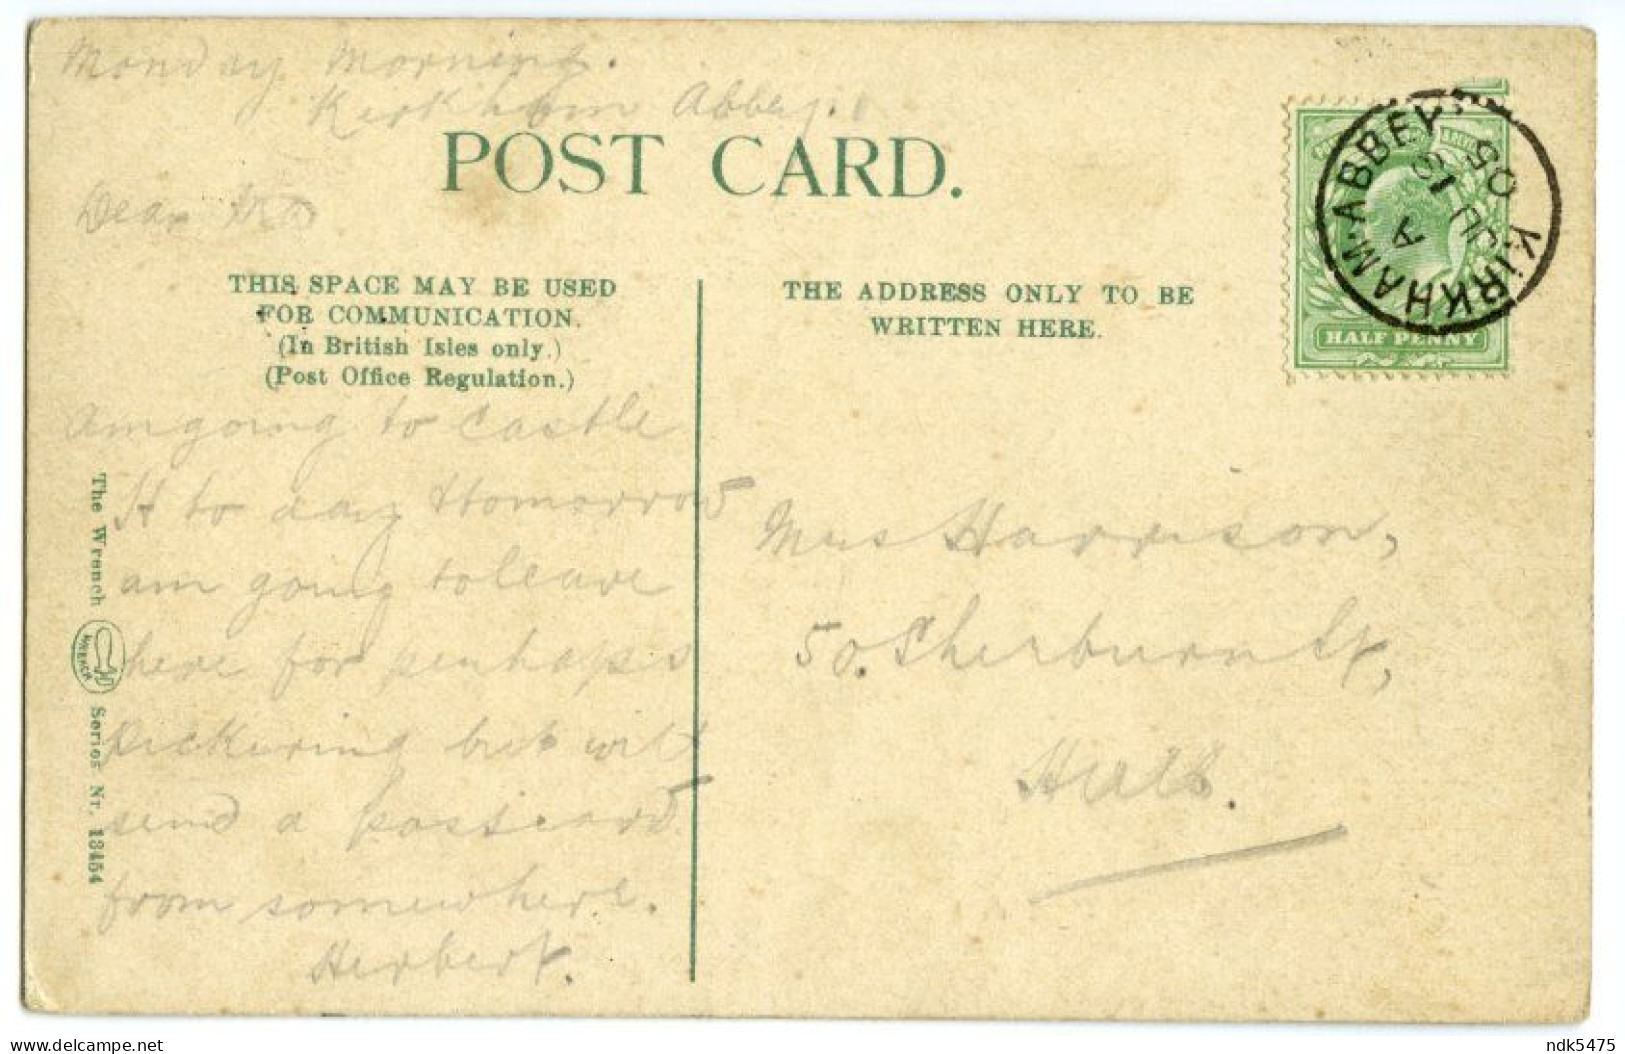 Monday Morning.
Kirkham Abbey.
POST CARD.
Dear
THIS SPACE MAY BE USED
FOR COMMUNICATION.
(In British Isles only.)
(Post Office Regulation.)
THE ADDRESS ONLY TO BE
WRITTEN HERE.
KIRKHAM·ABBEY
A
JU
05
HALF PENNY
am going to Castle
H to day & tomorrow
am going to leave
here for perhaps
Pickering but will
send a postcard
from somewhere.
Herbert.
Mrs Harrison,
50. Sherburn St,
Hull.
The Wrench
WRENCH
Series Nr. 13454
delcampe.net
ndk5475